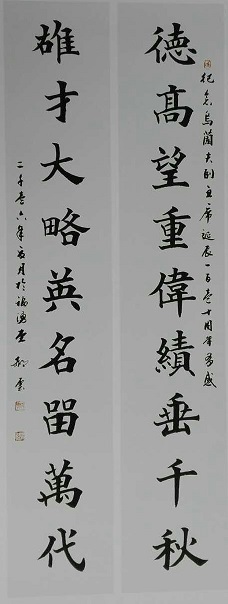 紀念烏蘭夫副主席誕辰一百壹十周年有感
德高望重偉績垂千秋
雄才大略英名留萬代
二千壹六年夏月於